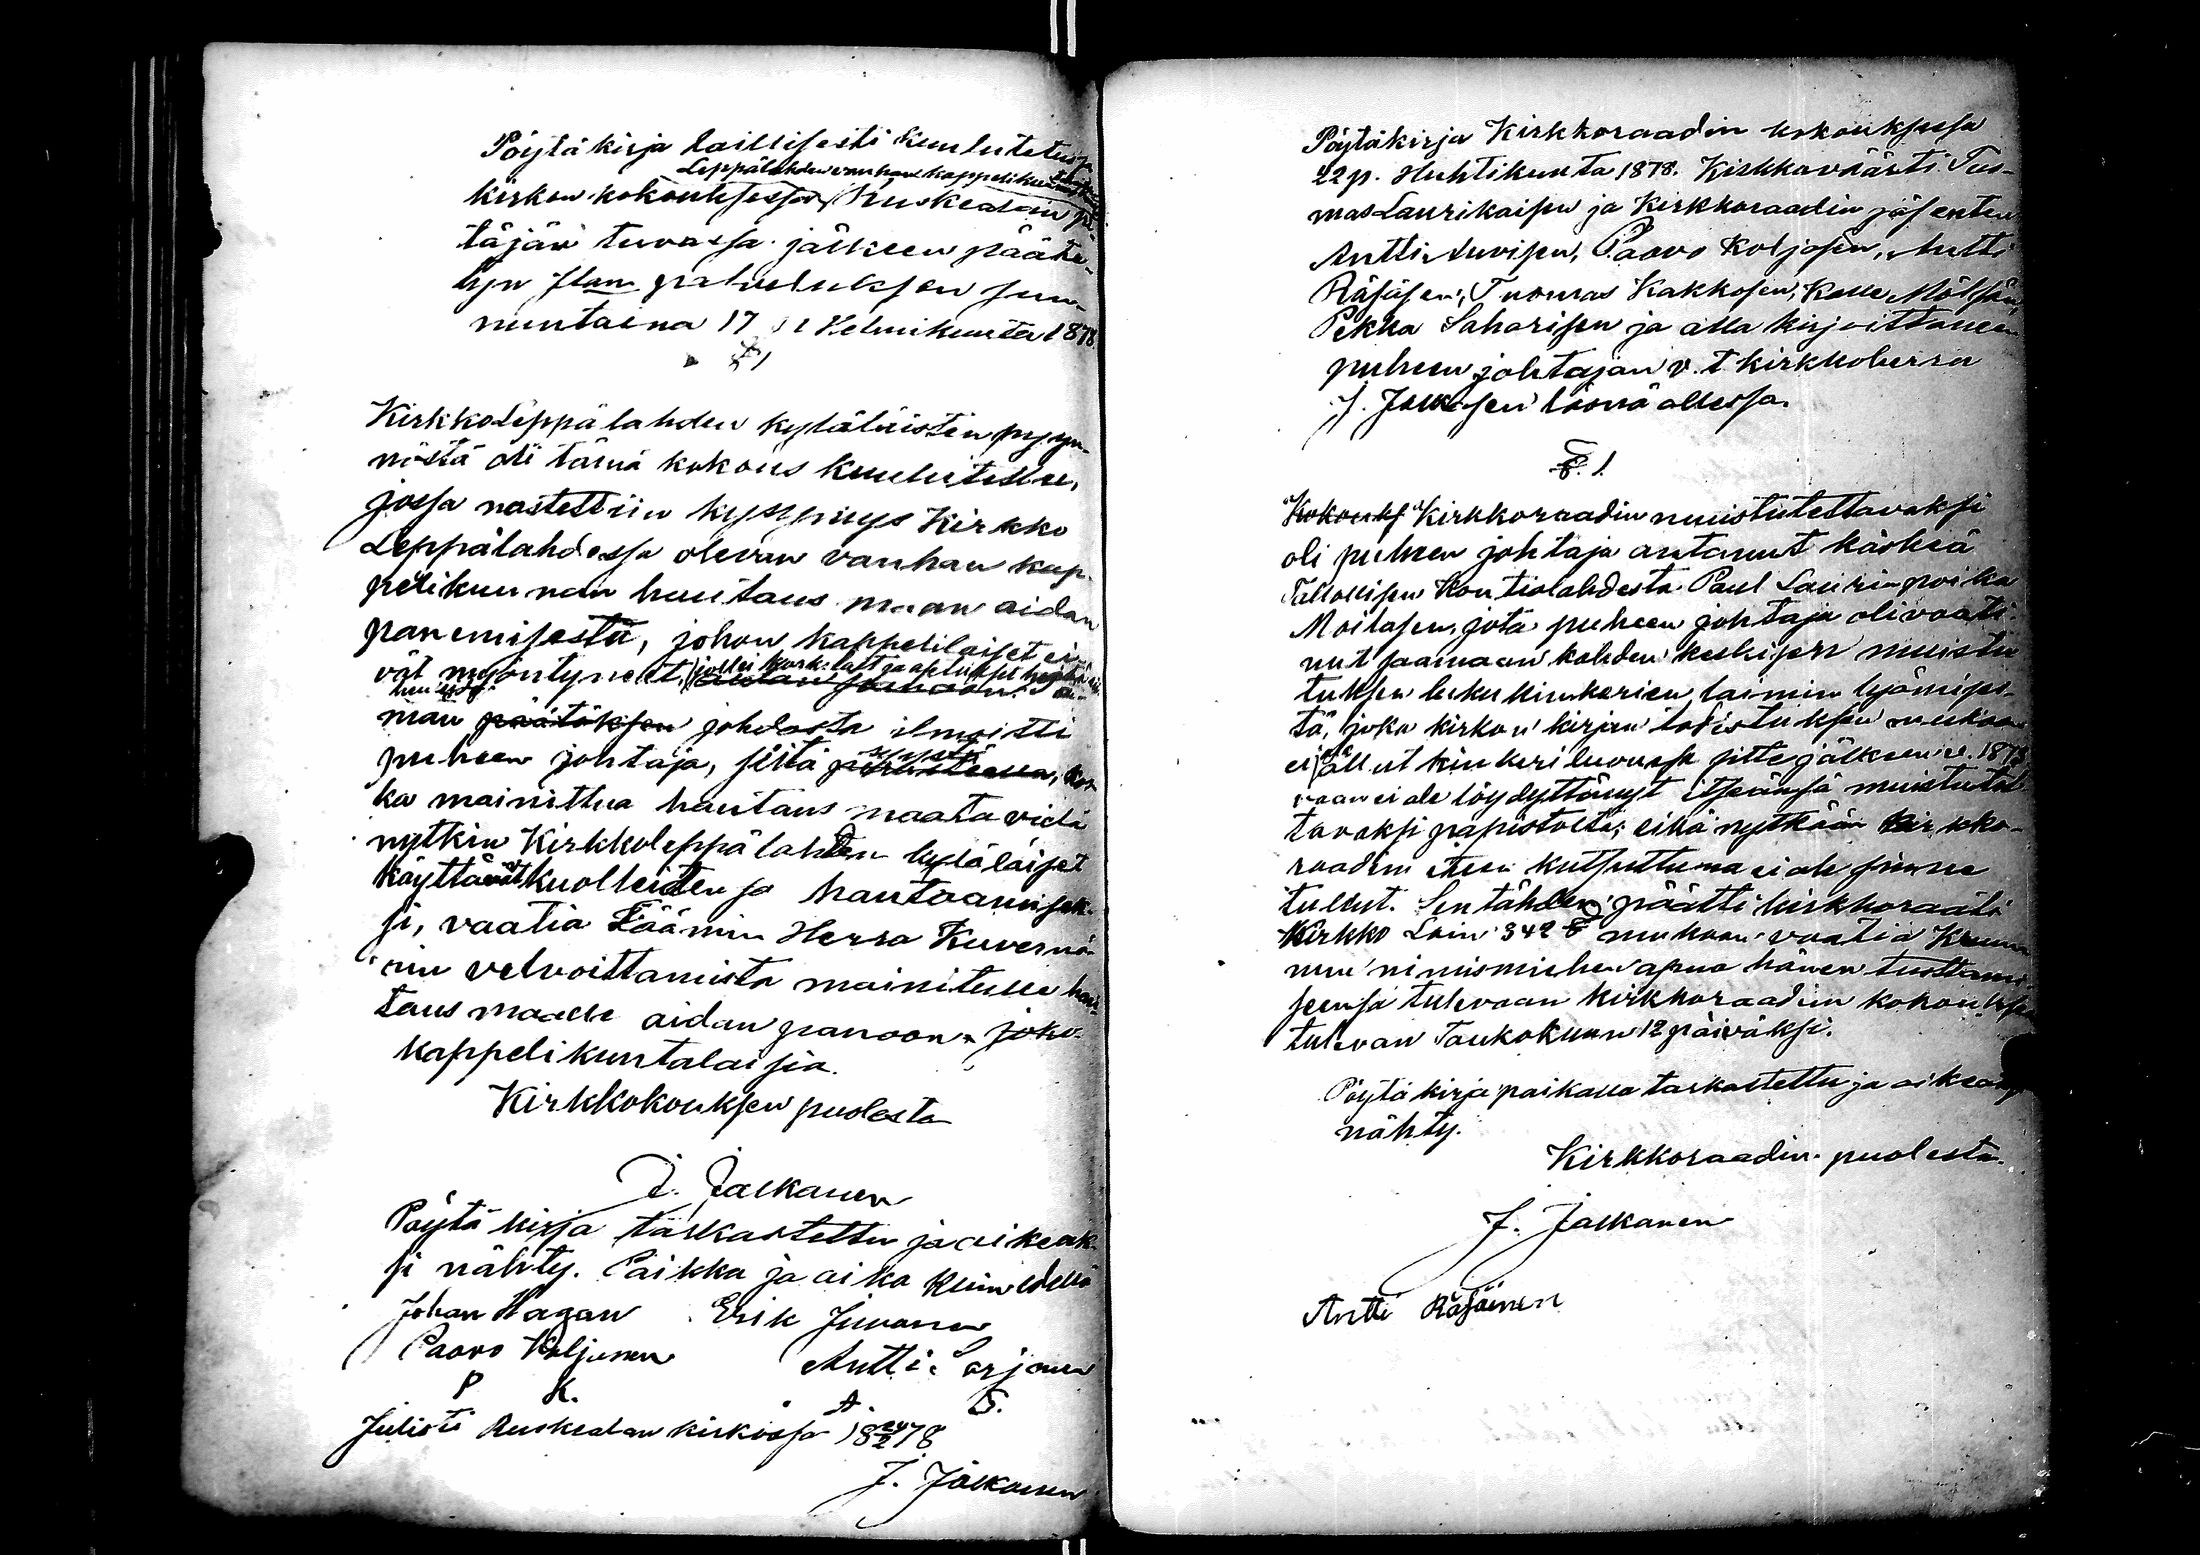 Pöytäkirja laillisesti kuulutetussa
Leppälahden vanhan kappelikunnan
kirkon kokouksessa Ruskealan pi-
täjän tuvassa jälkeen pääte-
tyn Jlan palveluksen sun-
nuntaina 17 Helmikuuta 1878
§ 1
KirkkoLeppälahden kyläläisten pyyn-
nöstä oli tämä kokous kuulutettu,
jossa nostettiin kysymys Kirkko
Leppälahdessa olevan vanhan kap-
pelikunnan hautaus maan aidan
panemisesta, johon kappelilaiset ei-
vät myöntyneet,
man päätöksen johdosta ilmoitti
puheen johtaja, että
ka mainittua hautaus maata vielä
nytkin Kirkkoleppälahden kyläläiset
käyttävät kuolleitensa hautaamisek-
si, vaatia Läänin Herra Kuvernö-
rin velvoittamista mainitulle hau-
taus maalle aidan panoon joko
kappelikuntalaisia.
Kirkkokouksen puolesta
J. Jalkanen
Pöytäkirja tarkastettu ja oikeak-
si nähty. Paikka ja aika kuin edellä
Johan Hagan Erik Juvonen
Paavo Koljunen Antti Sorjonen
P K. A. S.
Julisti Ruskealan kirkossa 18 24/2 78
J. Jalkanen
Pöytäkirja Kirkkoraadin kokouksessa
22 p. Huhtikuuta 1878. Kirkkoväärti Tuo-
mas Laurikaisen ja Kirkkoraadin jäsenten
Antti Auvisen, Paavo Koljosen, Antti
Räsäsen, Tuomas Kakkosen, Kalle Mölsän,
Pekka Saharisen ja alla kirjoittaneen
puheen johtajan v. t. kirkkoherra
J. Jalkasen läsnä ollessa.
§. 1.
Kokouks Kirkkoraadin muistutettavaksi
oli puheen johtaja antanut käskeä
Tallollisen Kontiolahdesta Paul Laurinpoika
Moilasen, jota puheen johtaja oli vaati-
nut saamaan kahden keskisen muistu
tuksen luku kinkerien laimin lyömises-
tä, joka kirkon kirjan todistuksen mukaan
ei ole ollut kinkeriluvussa sitte jälkeen v. 1873
vaan ei ole löydyttänyt itseänsä muistutet
tavaksi papistolta; eikä nytkään Kirkko-
raadin eteen kutsuttuna ei ole sinne
tullut. Sentähden päätti kirkkoraati
Kirkko Lain 342 § mukaan vaatia Kruu-
nun nimismiehen apua hänen tuottami-
seensa tulevaan kirkkoraadin kokoukseen
tulevan Toukokuun 12 päiväksi.
Pöytäkirja paikalla tarkastettu ja oikeaksi
nähty.
Kirkkoraadin puolesta.
J. Jalkanen
Antti Räsäinen